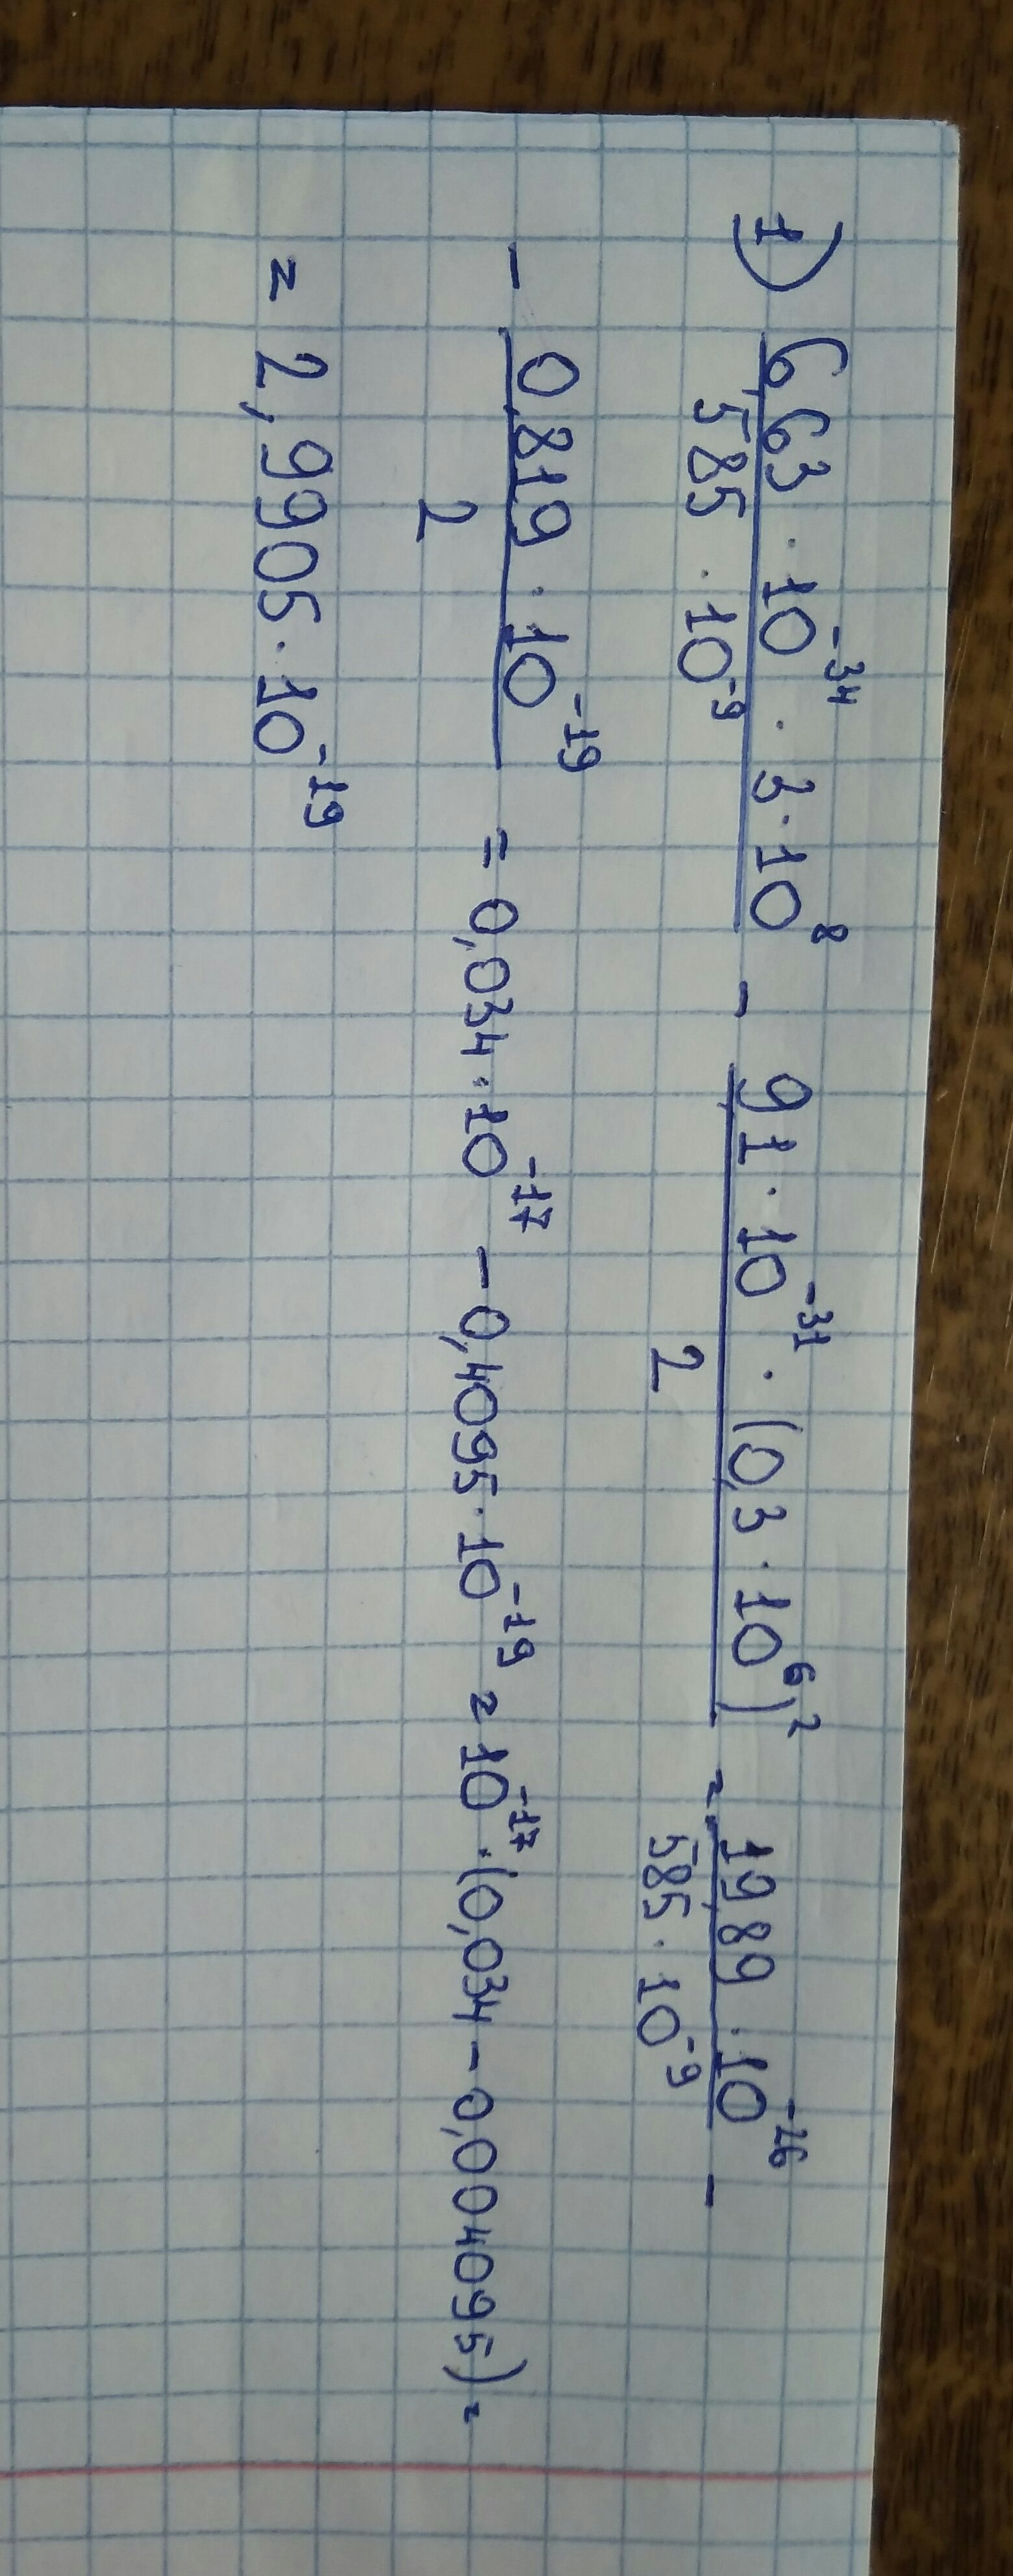 1) 6,63 · 10⁻³⁴ · 3 · 10⁸ / 585 · 10⁻⁹ − 9,1 · 10⁻³¹ · (0,3 · 10⁶)² / 2 = 19,89 · 10⁻²⁶ / 585 · 10⁻⁹ −
− 0,819 · 10⁻¹⁹ / 2 = 0,034 · 10⁻¹⁷ − 0,4095 · 10⁻¹⁹ = 10⁻¹⁷ · (0,034 − 0,004095) =
= 2,9905 · 10⁻¹⁹